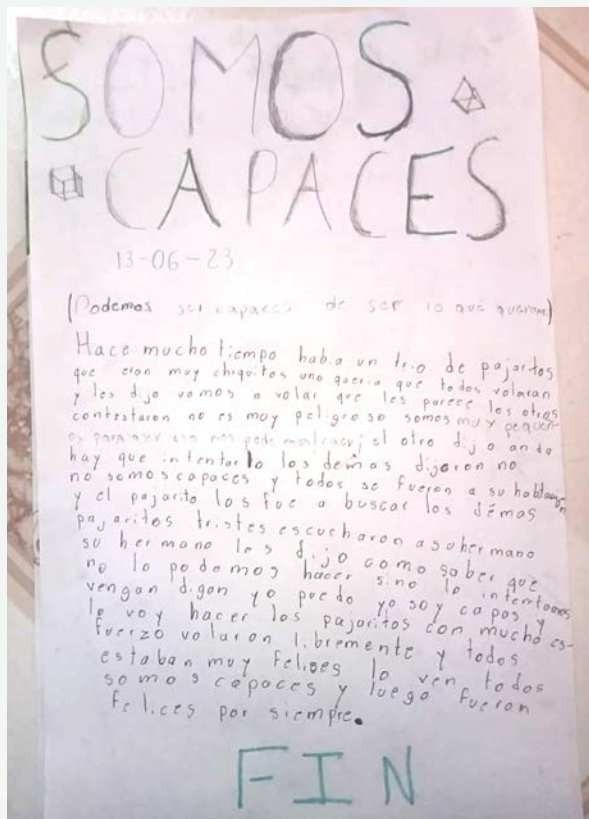 SOMOS
CAPACES
13-06-23
(Podemos ser capaces de ser lo que queram)
Hace mucho tiempo habia un trio de pajaritos
que eron muy chiquitos uno queria que todos volaran
y les dijo vamos a volar que les parece los otros
contestaron no es muy peligroso somos muy pequeñ-
os para nos el otro dijo anda
hay que intentarlo los demas dijaron no
no somos capaces y todos se fueron a su habitacion
y el pajarito los fue a buscar los démas
pajaritos tristes escucharon a su hermano
su hermano les dijo como saber que
no lo podemos hacer sino lo intentamos
vengan digan yo puedo yo soy capas y
lo voy hacer los pajaritos con mucho es-
fuerzo volaron libremente y todos
estaban muy felises lo ven todos
somos capaces y luego fueron
felices por siempre.
FIN